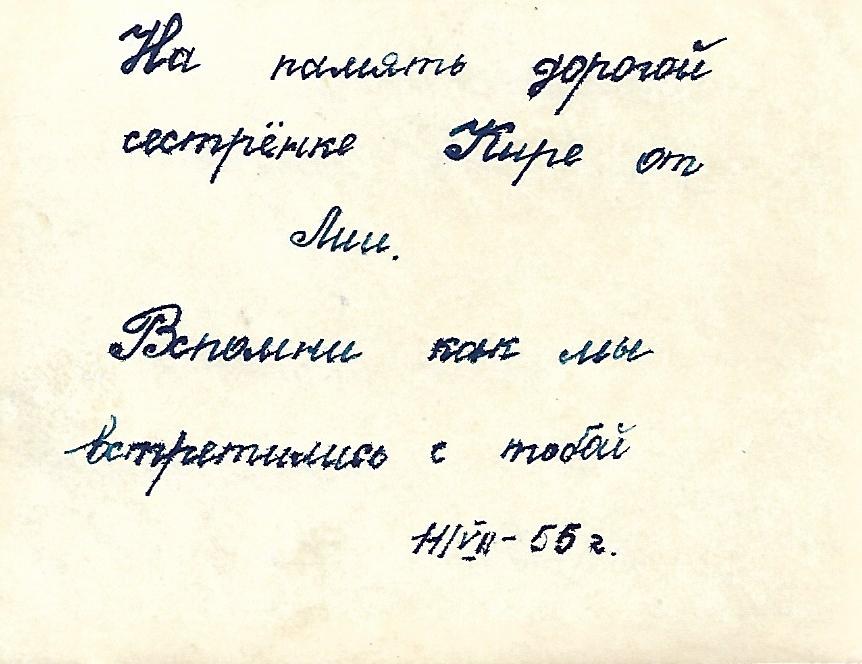 На память дорогой
сестрёнке Кире от
Лии.
Вспомни как мы
встретились с тобой
11/VII - 55 г.